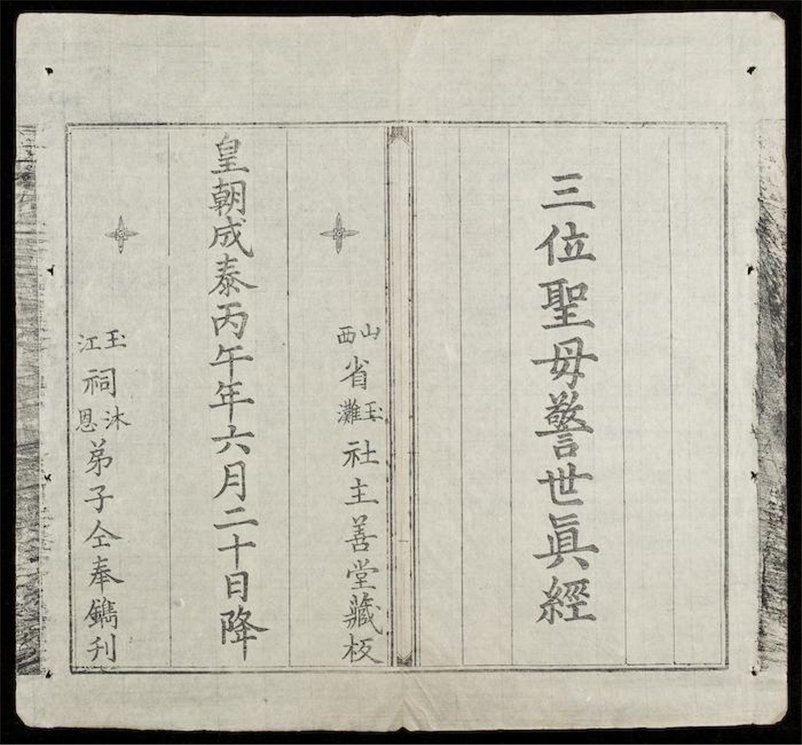 三位聖母警世眞經
山西省玉灘社主善堂藏板
皇朝成泰丙午年六月二十日降
玉江祠沐恩弟子仝奉鐫刋